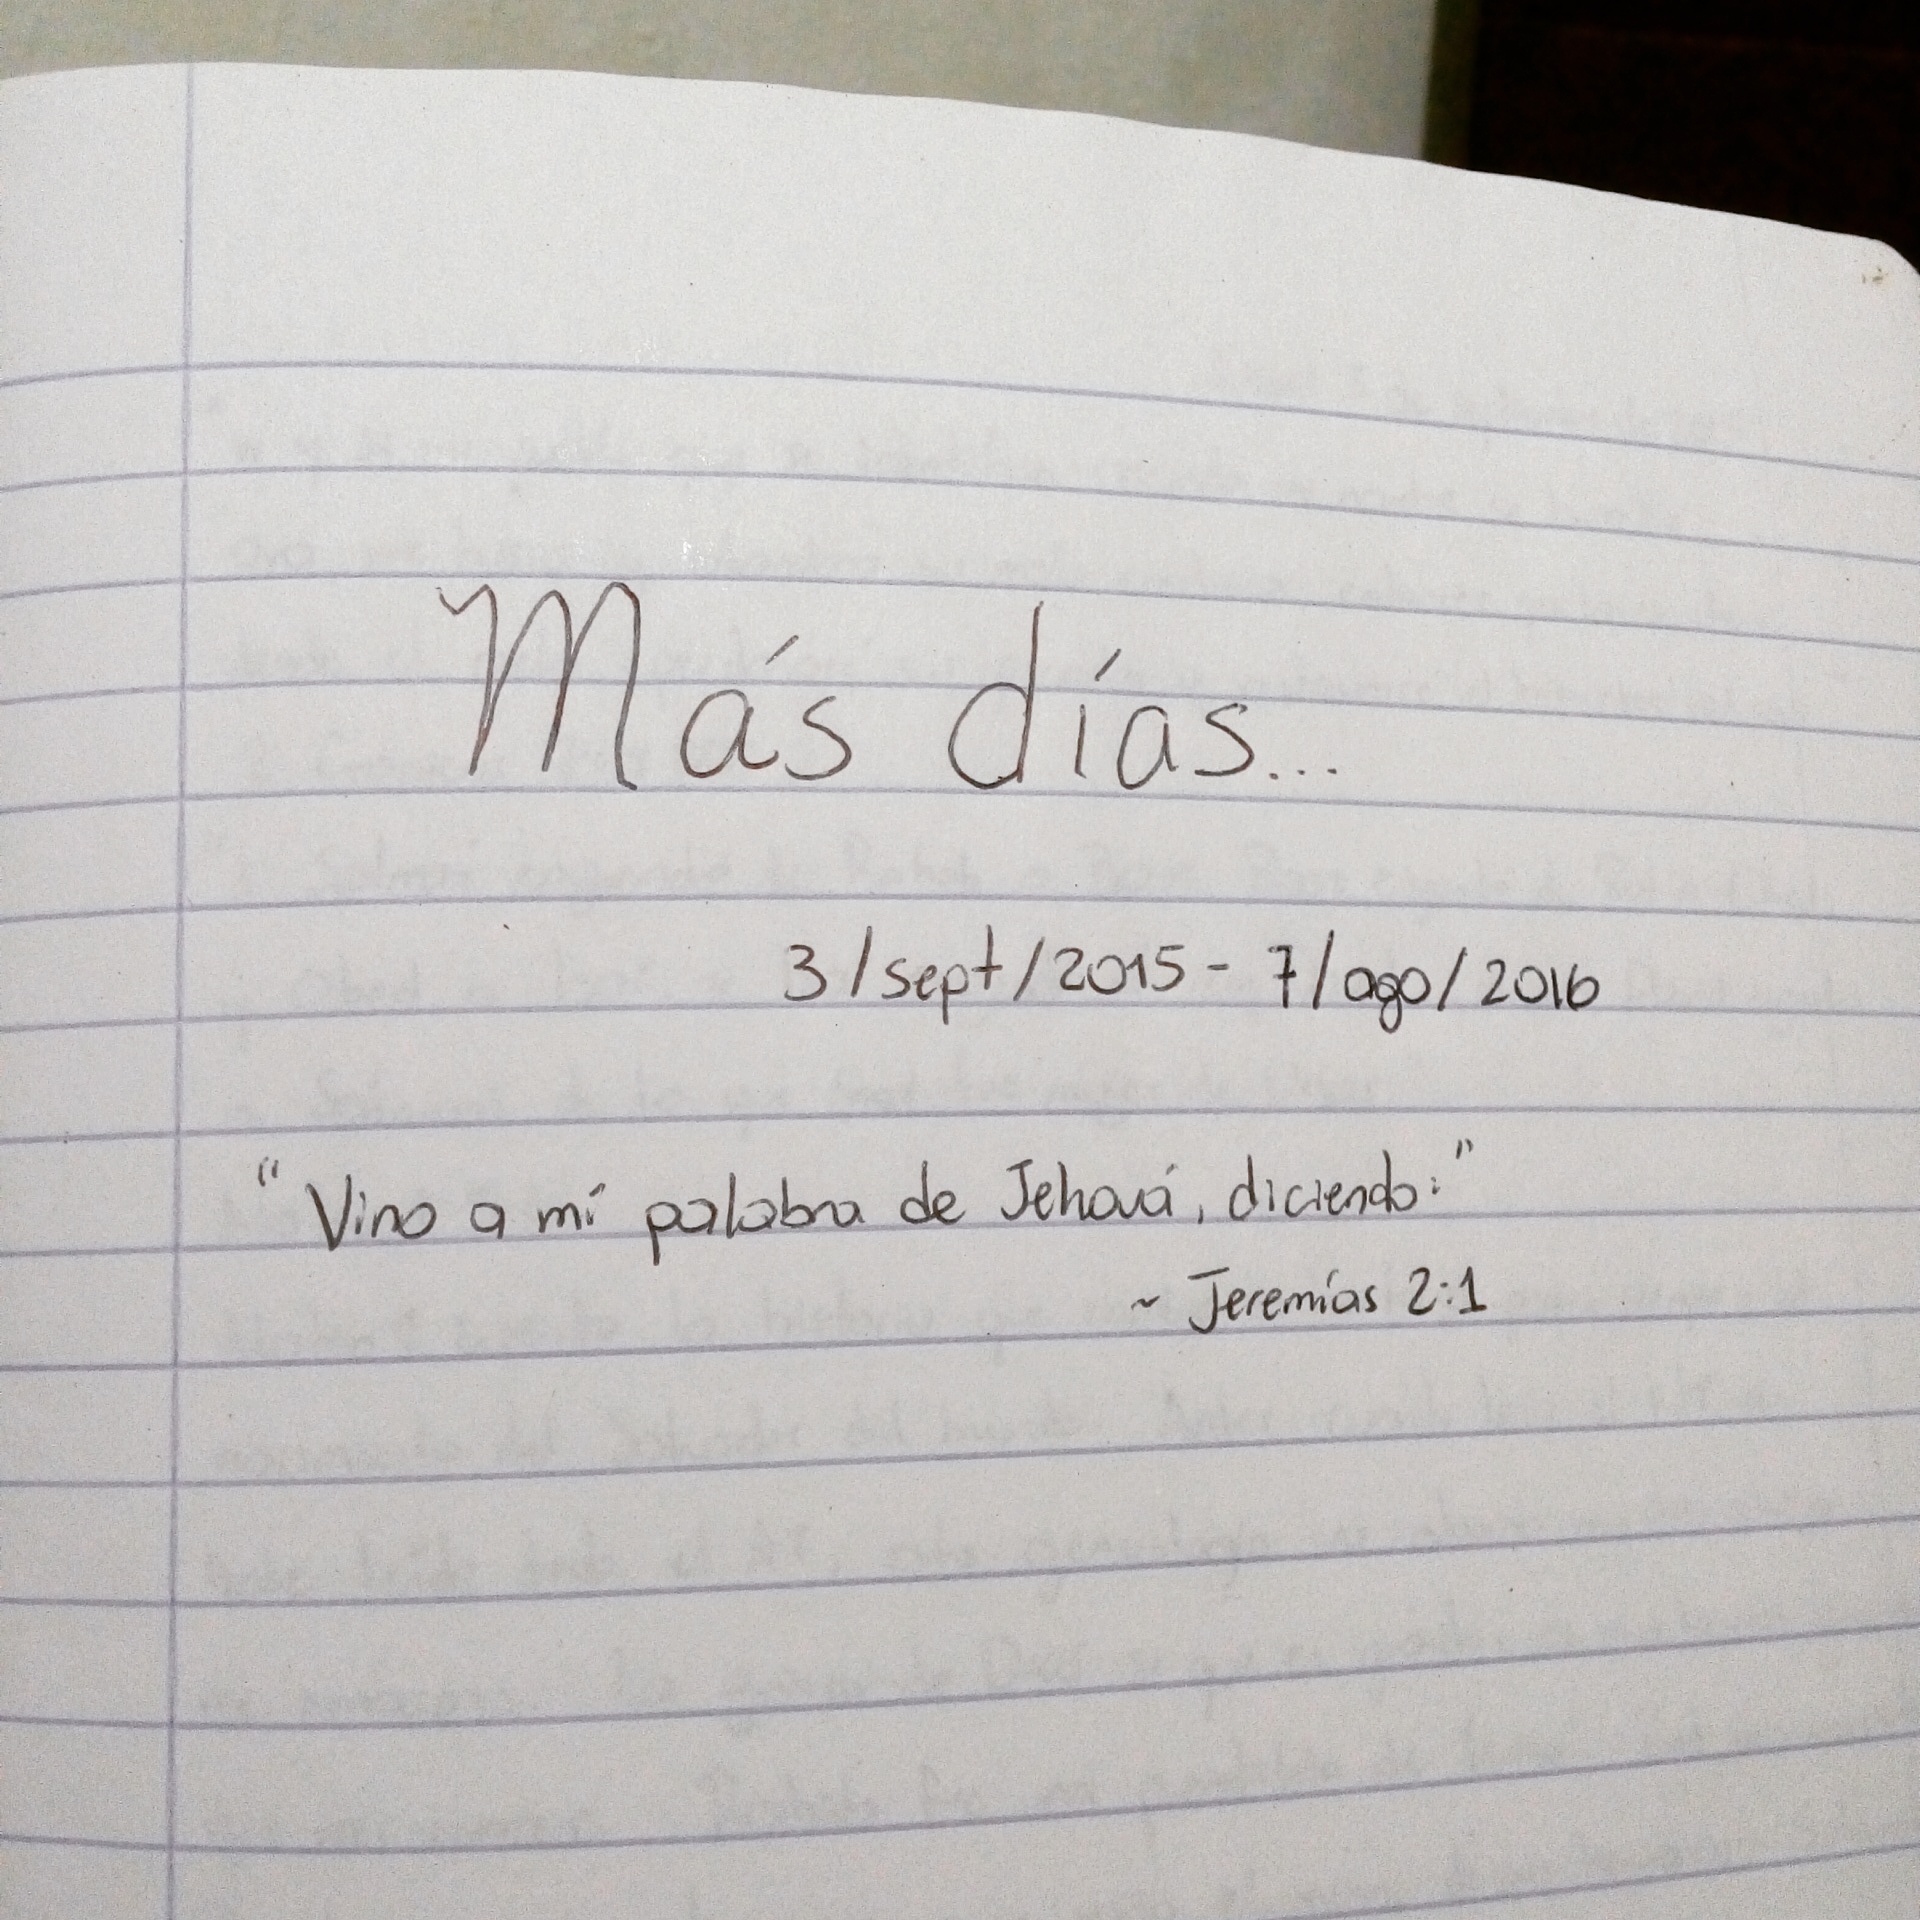 Más días...
3/sept/2015 - 7/ago/2016
"Vino a mí palabra de Jehová, diciendo:"
~ Jeremías 2:1